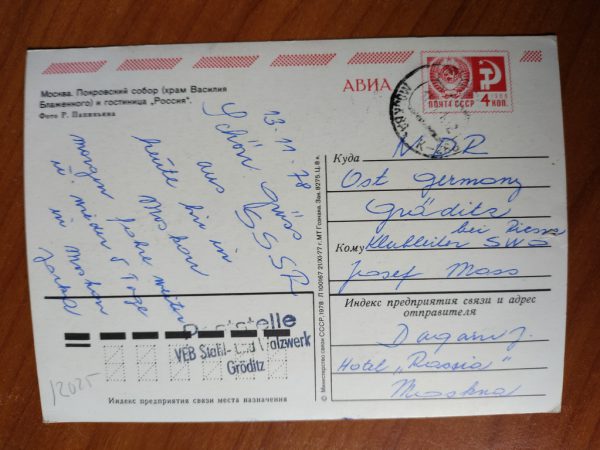 Москва. Покровский собор (храм Василия
Блаженного) и гостиница „Россия".
Фото Г. Папикьяна
АВИА
ПОЧТА СССР
4 КОП.
13. 11. 78
Schön. Grüss
aus SSSR
heute bin in
Moskau
morgen fahre weiter
u. wieder 5 Tage
in Moskau
Куда
DDR
Ost Germany
Gröditz
bei Riesa
Кому
Klubleiter SWG
Josef Mass
Индекс предприятия связи и адрес
отправителя
Hotel „Rossia"
Moskva
Poststelle
VEB Stahl- und Walzwerk
Gröditz
Индекс предприятия связи места назначения
12025
© Министерство связи СССР, 1978
МТ Гознака. Зак. 9275. Ц. 8 к.